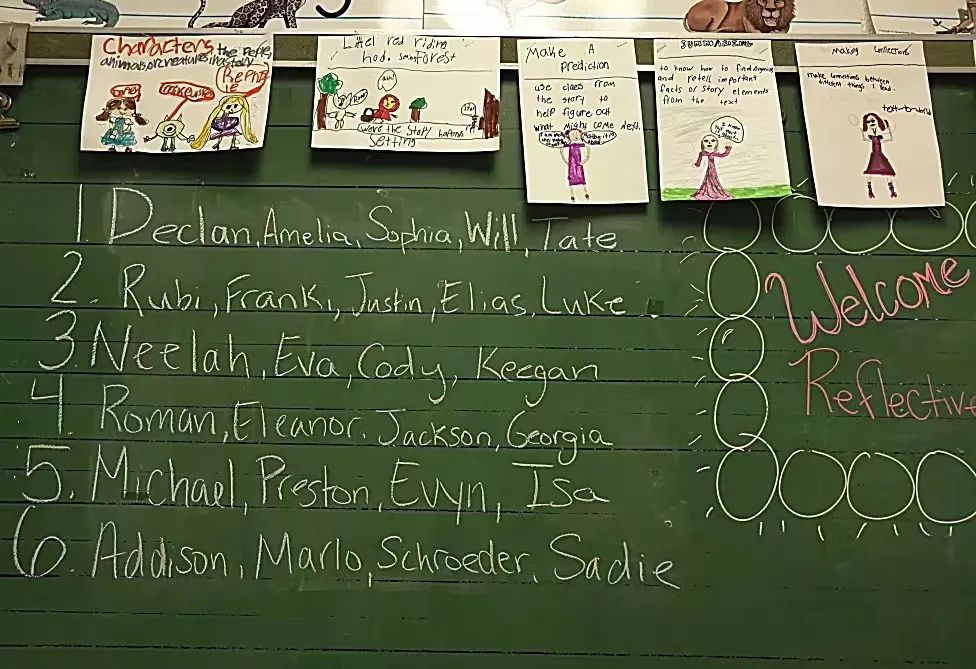 Characters, the People,
animals, or creatures in a story
Littel red riding
hod. Forest
were the story happens
Setting
Make A
prediction
use clues from
the story to
help figure out
what might come next.
to know how to find
and retell important
facts or story elements
from the text
Making connections
make connections between
different things I read.
1 Declan, Amelia, Sophia, Will, Tate
2. Rubi, Franki, Justin, Elias, Luke
3. Neelah, Eva, Cody, Keegan
4. Roman, Eleanor, Jackson, Georgia
5. Michael, Preston, Evyn, Isa
6. Addison, Marlo, Schroeder, Sadie
Welcome
Reflective